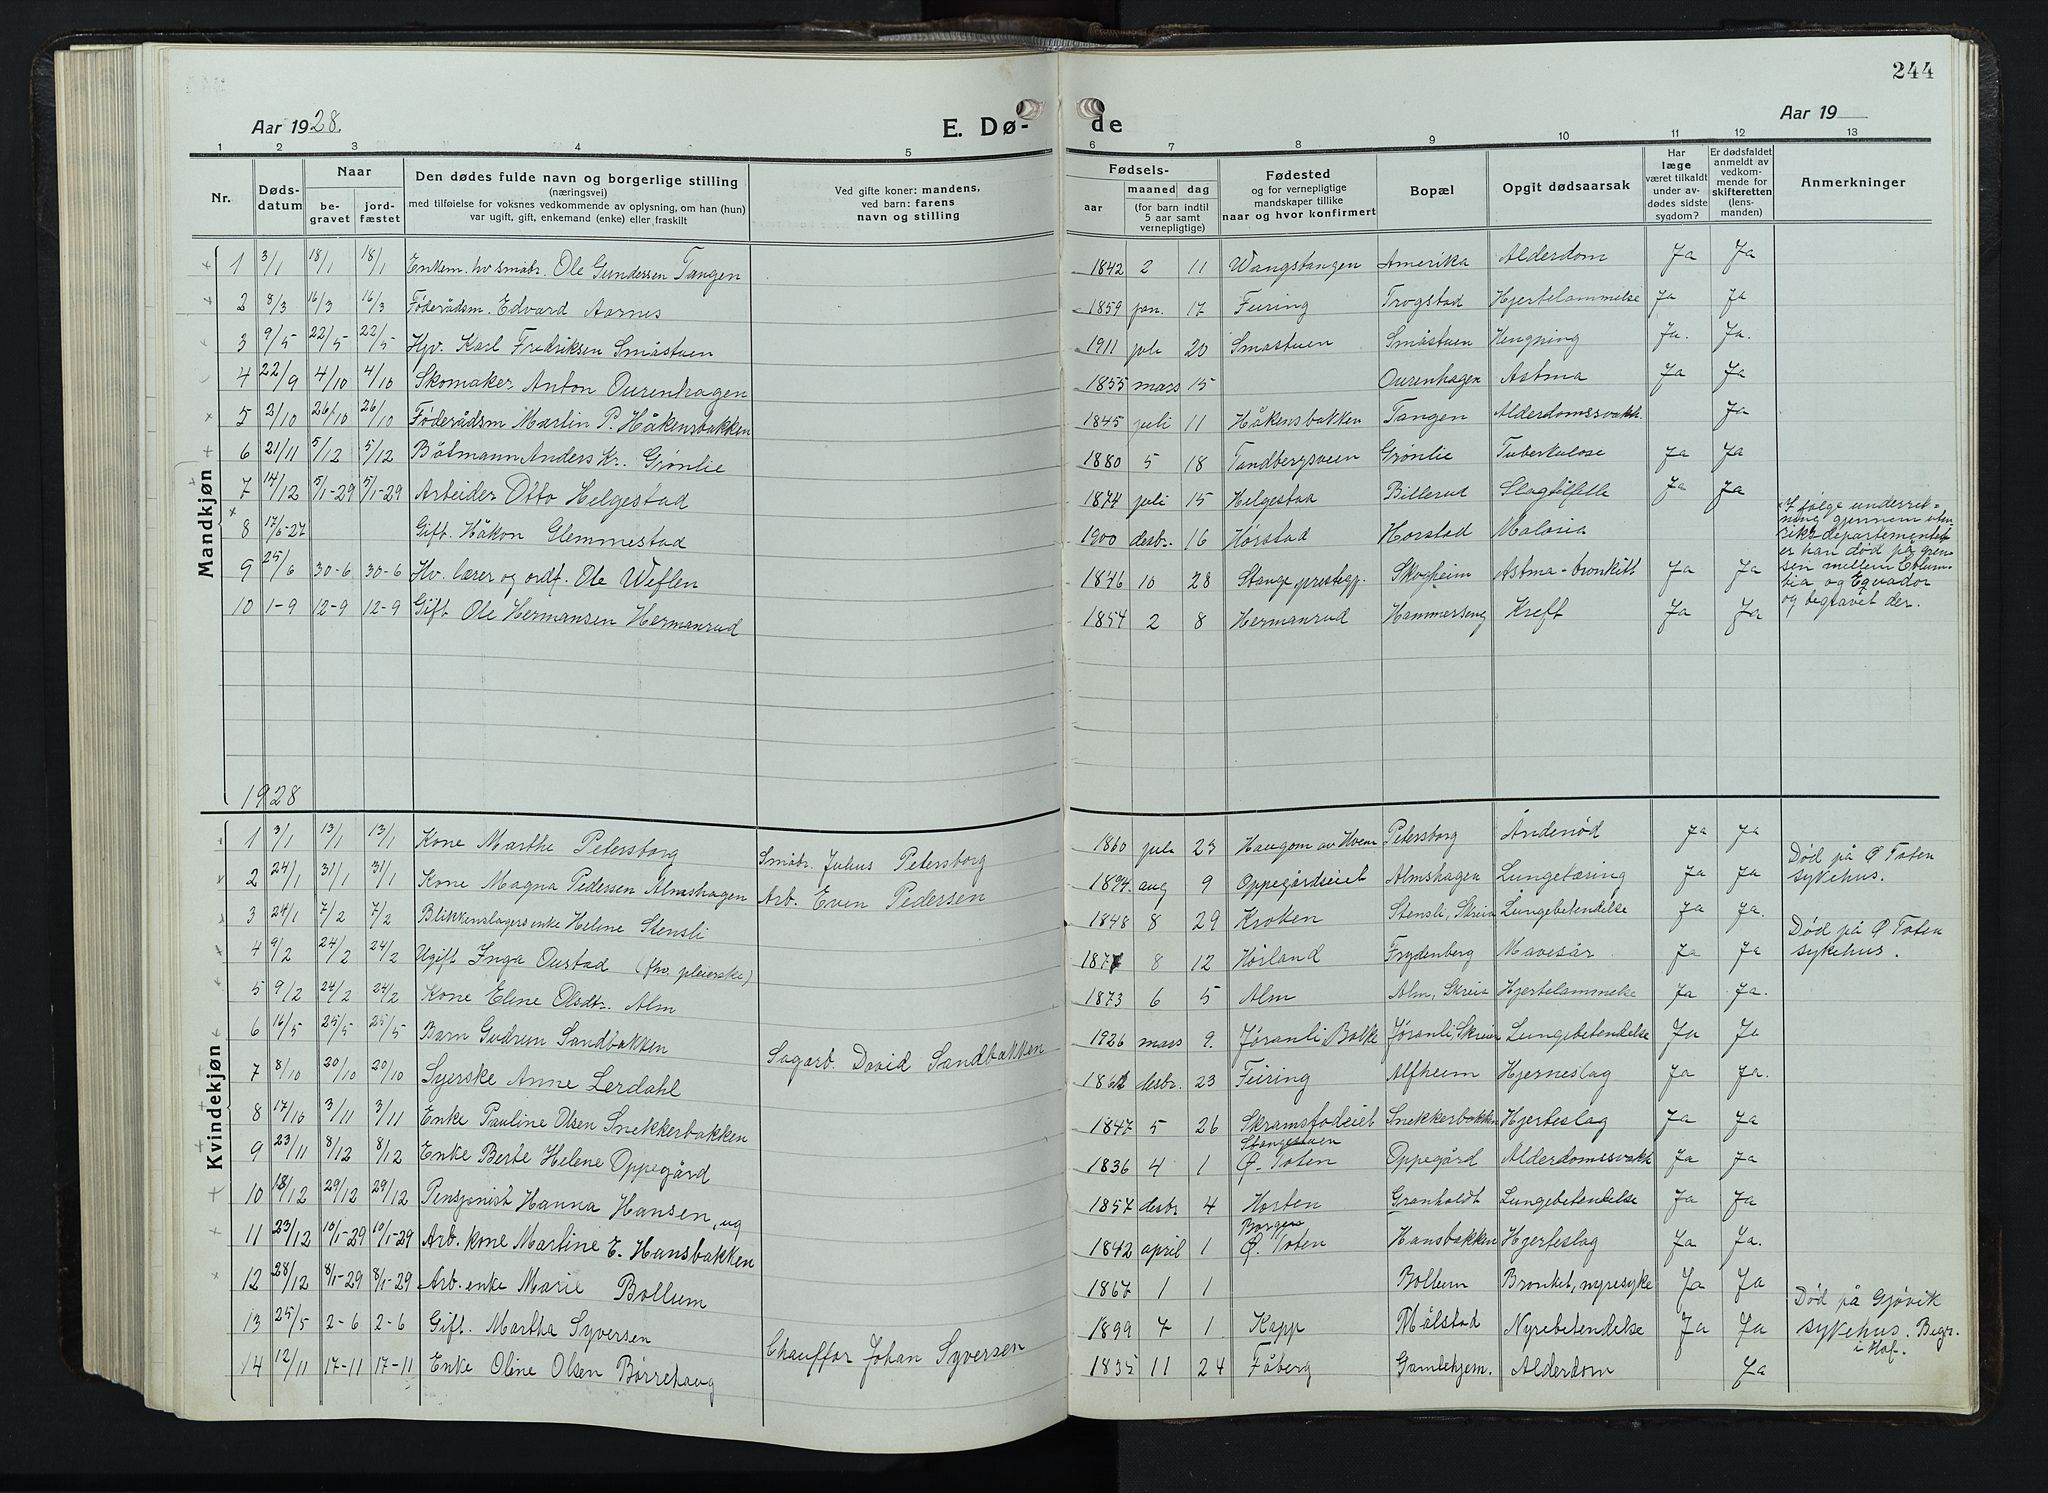 244
Aar 1928.
E. Dø-
de
Aar 19
1 2 3 4 5 6 7 8 9 10 11 12 13
Nr.
Døds-
datum
Naar
be-
gravet
jord-
fæstet
Den dødes fulde navn og borgerlige stilling
(næringsvei)
med tilføielse for voksnes vedkommende av oplysning, om han (hun)
var ugift, gift, enkemand (enke) eller fraskilt
Ved gifte koner: mandens,
ved barn: farens
navn og stilling
Fødsels-
aar
maaned
dag
(for barn indtil
5 aar samt
vernepligtige)
Fødested
og for vernepligtige
mandskaper tillike
naar og hvor konfirmert
Bopæl
Opgit dødsaarsak
Har
læge
været tilkaldt
under av-
dødes sidste
sygdom?
Er dødsfaldet
anmeldt av
vedkom-
mende for
skifteretten
(lens-
manden)
Anmerkninger
Mandkjøn
1 3/1 18/1 18/1 Enkem. hv småbr. Ole Gundersen Tangen 1842 2 11 Wangstangen Amerika Alderdom Ja Ja
2 8/3 16/3 16/3 Føderådsm. Edvard Aarnes 1859 jan. 17 Feiring Trogstad Hjertelammelse Ja Ja
3 9/5 22/5 22/5 Hjv. Karl Fredriksen Småstuen 1911 juli 20 Småstuen Småstuen Hengning Ja. Ja.
4 22/9 4/10 4/10 Skomaker Anton Ourenhagen 1855 mars 15 Ourenhagen Astma Ja Ja
5 2/10 26/10 26/10 Føderådsm Martin P. Håkensbakken 1845 juli 11 Håkensbakken Tangen Alderdomssvakh. Ja
6 21/11 5/12 5/12 Båtmann Anders Kr. Grønlie 1880 5 18 Tandbergsveen Grønlie Tuberkulose Ja Ja
7 14/12 5/1-29 5/1-29 Arbeider Otto Helgestad 1874 juli 15 Helgestad Billerud Slagtilfelle Ja Ja
8 17/5-27 Gift. Håkon Glemmestad 1900 desbr. 16 Hørstad Horstad Malaria
× I følge underret-
ning gjennem uten
riksdepartementet
er han død på gren-
sen mellem Colum-
bia og Equador
og begravet der.
9 25/6 30-6 30-6 Hv. lærer og ordf. Ole Weflen 1846 10 28 Stange prestegj. Skogheim Astma-bronkitt Ja Ja
10 1-9 12-9 12-9 Gift Ole Hermansen Hermanrud 1854 2 8 Hermanrud Hammerseng Kreft Ja Ja
1928
Kvindekjøn
1 3/1 13/1 13/1 Kone Marthe Petersborg Småbr. Julius Petersborg 1860 juli 23 Haugom av Hveem Petersborg Åndenød Ja Ja
2 24/1 31/1 31/1 Kone Magna Pedersen Almshagen Arb. Even Pedersen 1894 aug 9 Oppegårdseiet Almshagen Lungetæring Ja Ja Død på Ø Toten
sykehus.
3 24/1 7/2 7/2 Blikkenslagersenke Helene Stensli 1848 8 29 Kroken Stensli, Skreia Lungebetendelse Ja Ja.
4 9/2 24/2 24/2 Ugift Inga Oustad (fhv. pleierske) 187 8 12 Hørland Frydenberg Mavesår Ja Ja Død på Ø Toten
sykehus.
5 9/2 24/2 24/2 Kone Eline Olsdtr. Alm 1873 6 5 Alm Alm, Skreia Hjertelammelse Ja Ja.
6 16/5 25/5 25/5 Barn Gudrun Sandbakken Sagarb. David Sandbakken 1926 mars 9. Jøranli, Balke Jøranli, Skreia Lungebetendelse Ja Ja
7 8/10 20/10 20/10 Syerske Anne Lerdahl 186 desbr. 23 Feiring Alfheim Hjerneslag Ja Ja.
8 17/10 3/11 3/11 Enke Pauline Olsen Snekkerbakken 1847 5 26 Skramstadeiet Snekkerbakken Hjerteslag Ja Ja
9 23/11 8/12 8/12 Enke Berte Helene Oppegård 1836 4 1 Stangestuen
Ø. Toten Oppegård Alderdomssvakh Ja Ja
10 18/12 29/12 29/12 Pensjonist Hanna Hansen, ug 1857 desbr 4 Horten Granholdt Lungebetendelse Ja Ja
11 23/12 10/1-29 10/1-29 Arb. kone Martine E. Hansbakken 1842 april 1 Borgen
Ø. Toten Hansbakken Hjerteslag Ja Ja.
12 28/12 8/1-29 8/1-29 Arb. enke Marie Bollum 1867 1 1 Bollum Bronkit, nyresyke Ja Ja
13 25/5 2-6 2-6 Gift. Martha Syversen Chauffør Johan Syversen 1899 7 1 Kapp Målstad Nyrebetendelse Ja Ja Død på Gjøvik
sykehus. Begr.
i Hof.
14 12/11 17-11 17-11 Enke Oline Olsen Børrehaug 1835 11 24 Fåberg Gamlehjem. Alderdom Ja